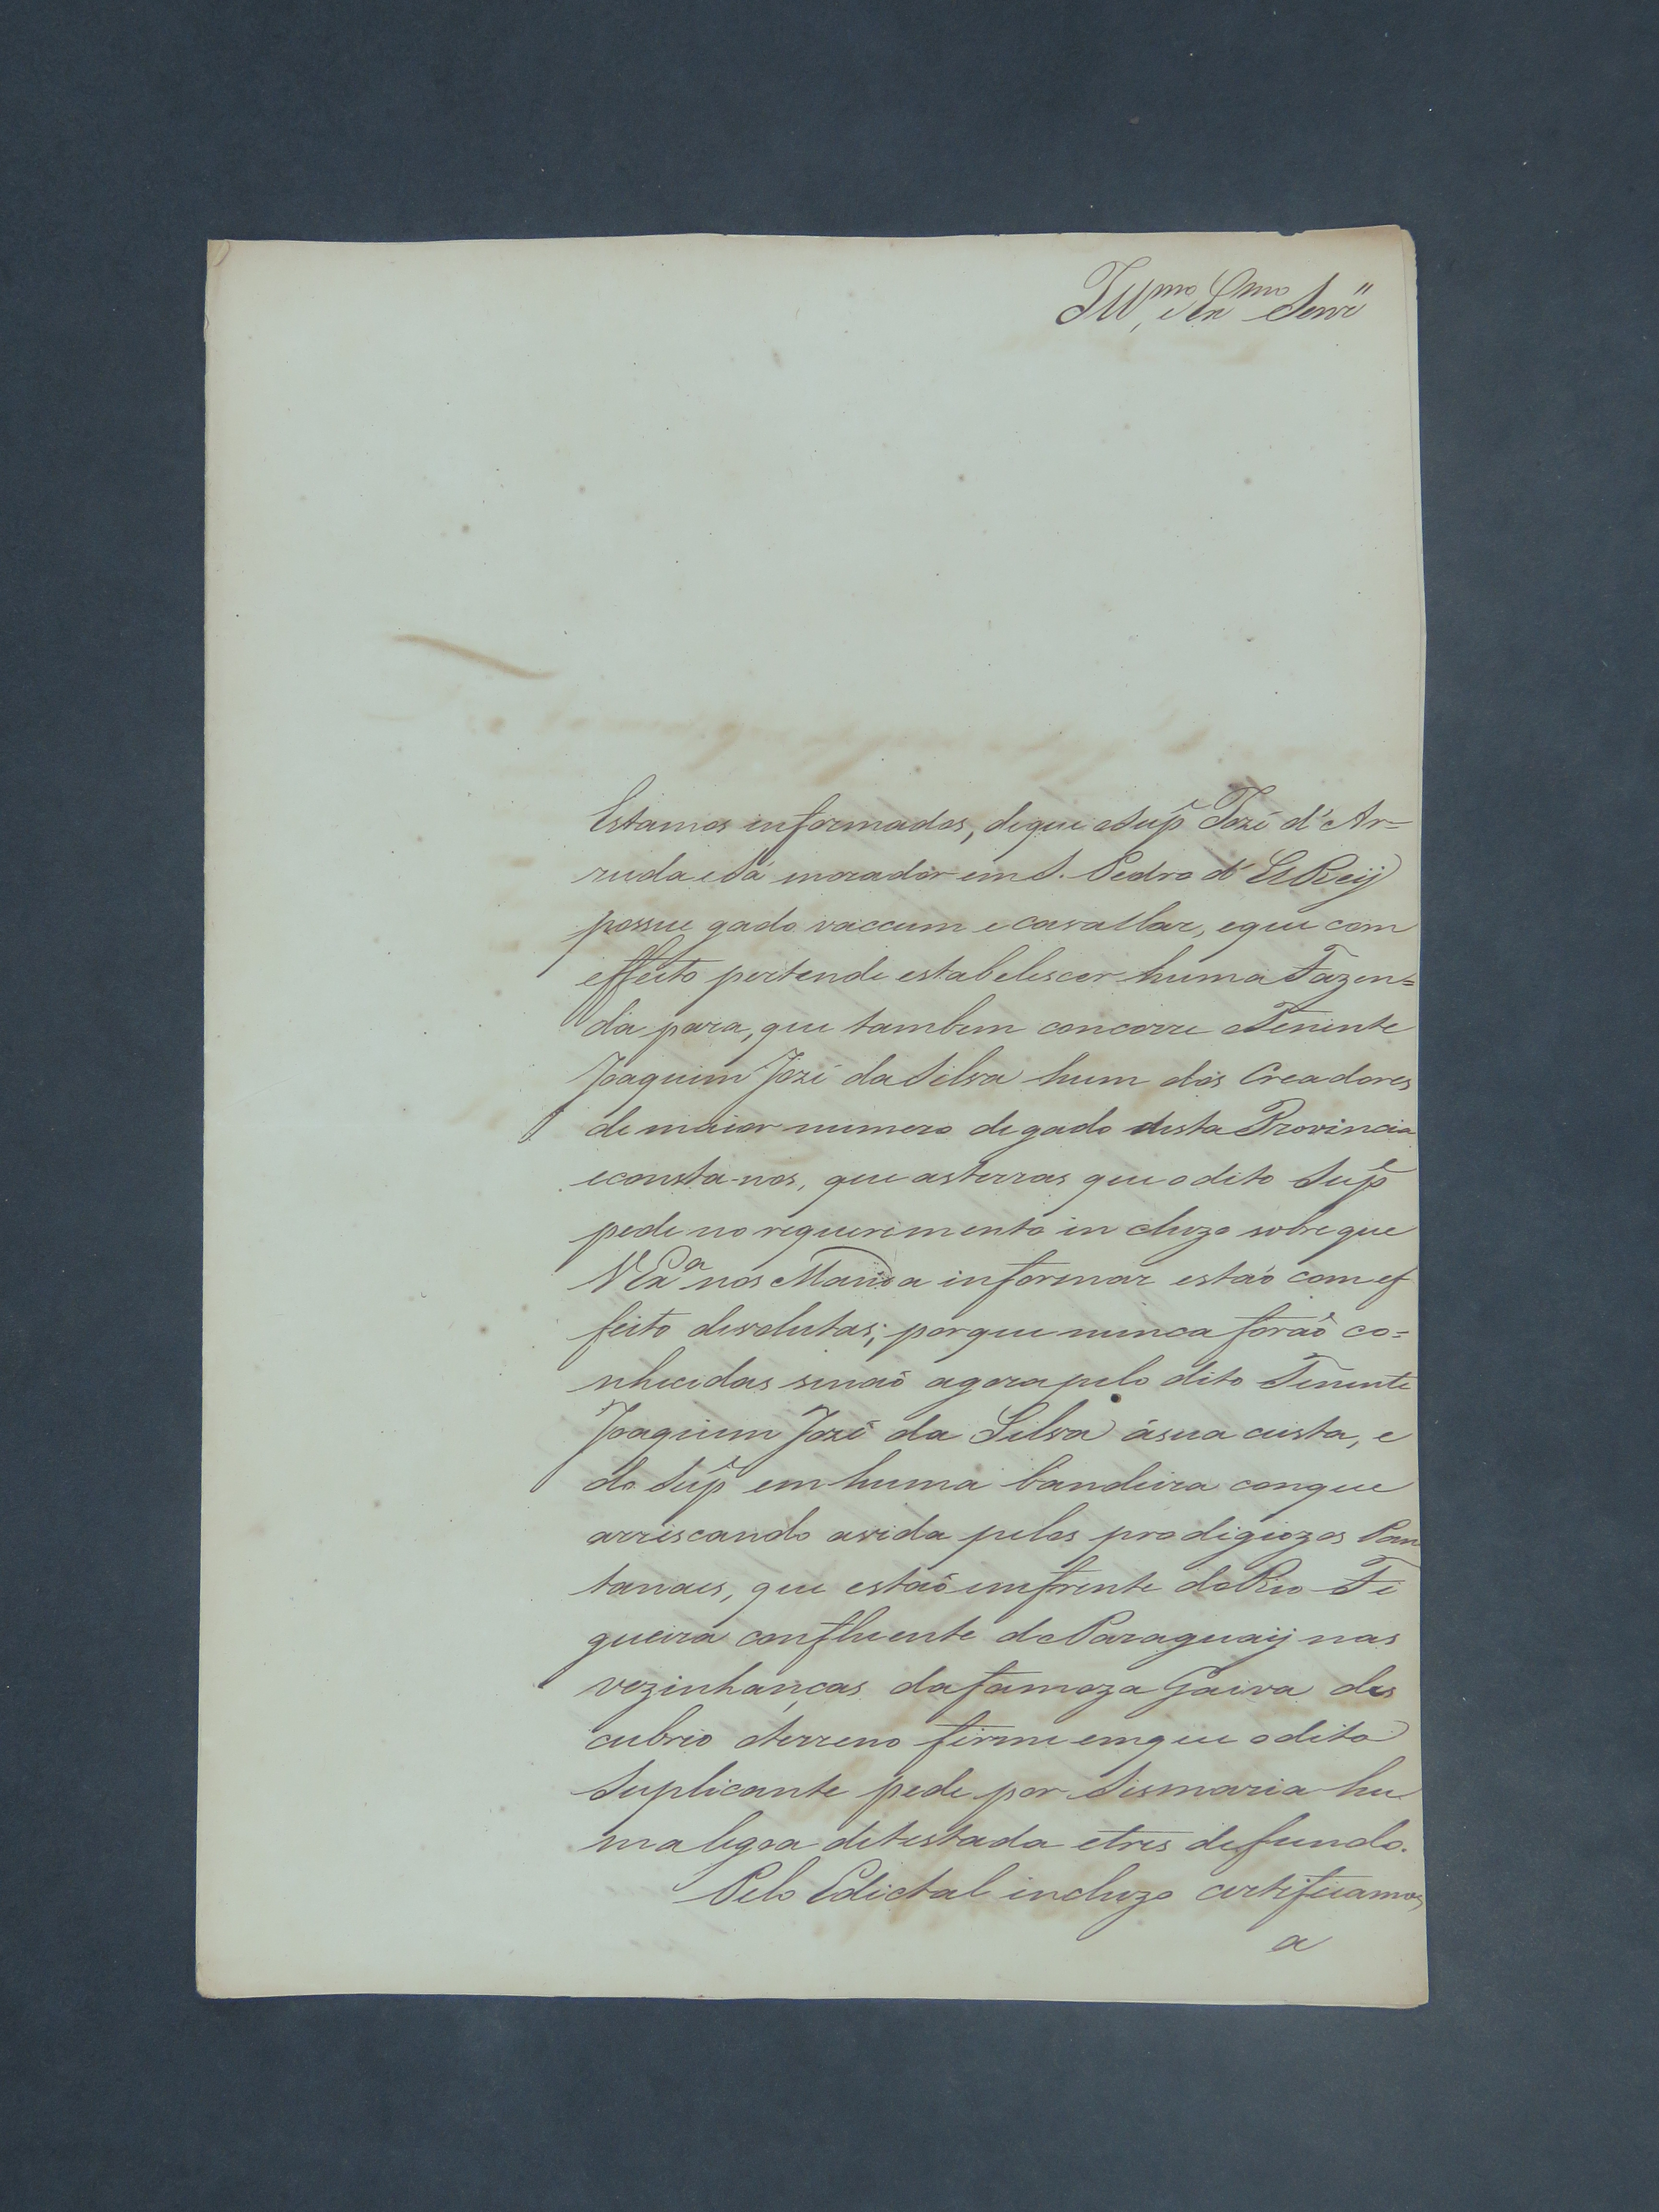 Ill.mo, e Ex.mo Senr.
Estamos informados, deque oSup.e Jozé d'Ar-
ruda eSá morador em S. Pedro d'ElRey
possue gado vaccum e cavallar, eque com
effeito pertende estabelescer huma Fazen=
da para, que tambem concorre oTenente
Joaquim Jozé da Silva hum dos Creadores
de maior numero de gado desta Provincia
econsta-nos, que asterras que odito Sup.e
pede no requerimento in cluzo sobreque
VEx.a nos Manda informar estaõ com ef
feito devolutas; porque nunca foraõ co=
nhecidas senaõ agora pelo dito Tenente
Joaquim Jozé da Silva ásua custa, e
do Sup.e em huma bandeira conque
arriscando avida pelos prodigiozos Pan
tanaes, que estaõ emfrente doRio Fi
gueira confluente do Paraguay nas
vezinhanças dafamoza Gaiva des
cubrio oterreno firme emque odito
Suplicante pede por Sismaria hu
ma legoa detestada etres defundo.
Pelo Edictal incluzo certificamos
a